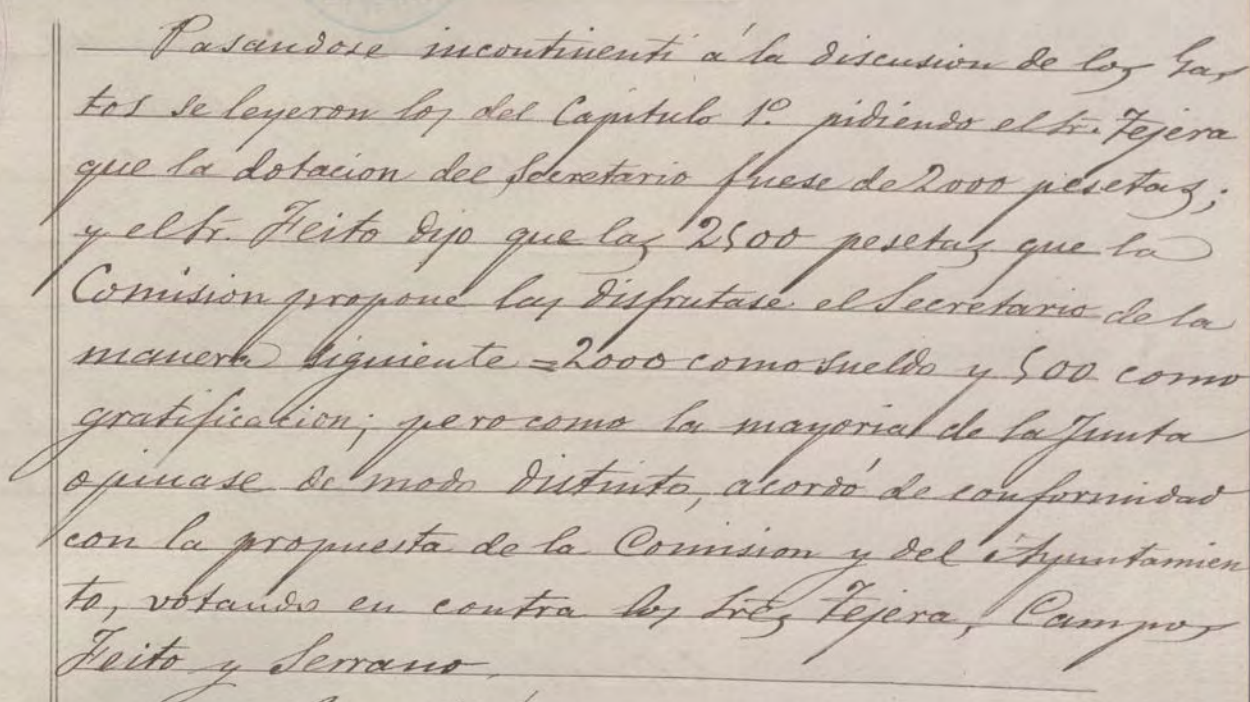 Pasandose incontinenti á la discusion de los Gas
tos se leyeron los del Capitulo 1º pidiendo el Sr. Tejera
que la dotacion del Secretario fuese de 2000 pesetas;
y el Sr. Feito dijo que las 2500 pesetas que la
Comision propone las disfrutase el Secretario de la
manera siguiente = 2000 como sueldo y 500 como
gratificacion; pero como la mayoria de la Junta
opinase de modo distinto, acordó de conformidad
con la propuesta de la Comision y del Ayuntamien
to, votando en contra los Sres Tejera, Campos
Feito y Serrano.